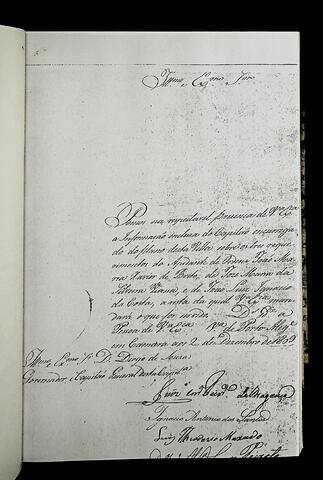 Illmo. e Exmo. Snr.
Pomos na respeitavel presença de V. Exa.
a Informação incluza do Capitão encarregado
do plano desta Villa sobre os tres reque-
rimentos do Ajudante de Ordens João
Xavier de Brito, de José
Silveira Viana, e de João Luis Ignacio
da Costa, a vista da qual V. Exa. man-
dará o que for servido. D. Ge. a
Pessoa de V. Exa. Va. de Porto Alege.
em Camera aos 2 de Dezembro de 1809
Illmo. e Exmo. Sr. D. Diogo de Souza
Governador, e Capitão General desta Capita.
de Bragança
Ignacio Antonio dos Santos
Luis Theodozio Machado